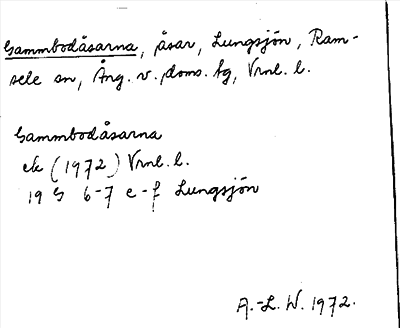 Gammbodåsarna, åsar, Lungsjön, Ram-
sele sn, Ång. v. doms. tg, Vrnl. l.
Gammbodåsarna
ek (1972) Vrnl. l.
19 G 6-7 e-f Lungsjön
A.-L. W. 1972.